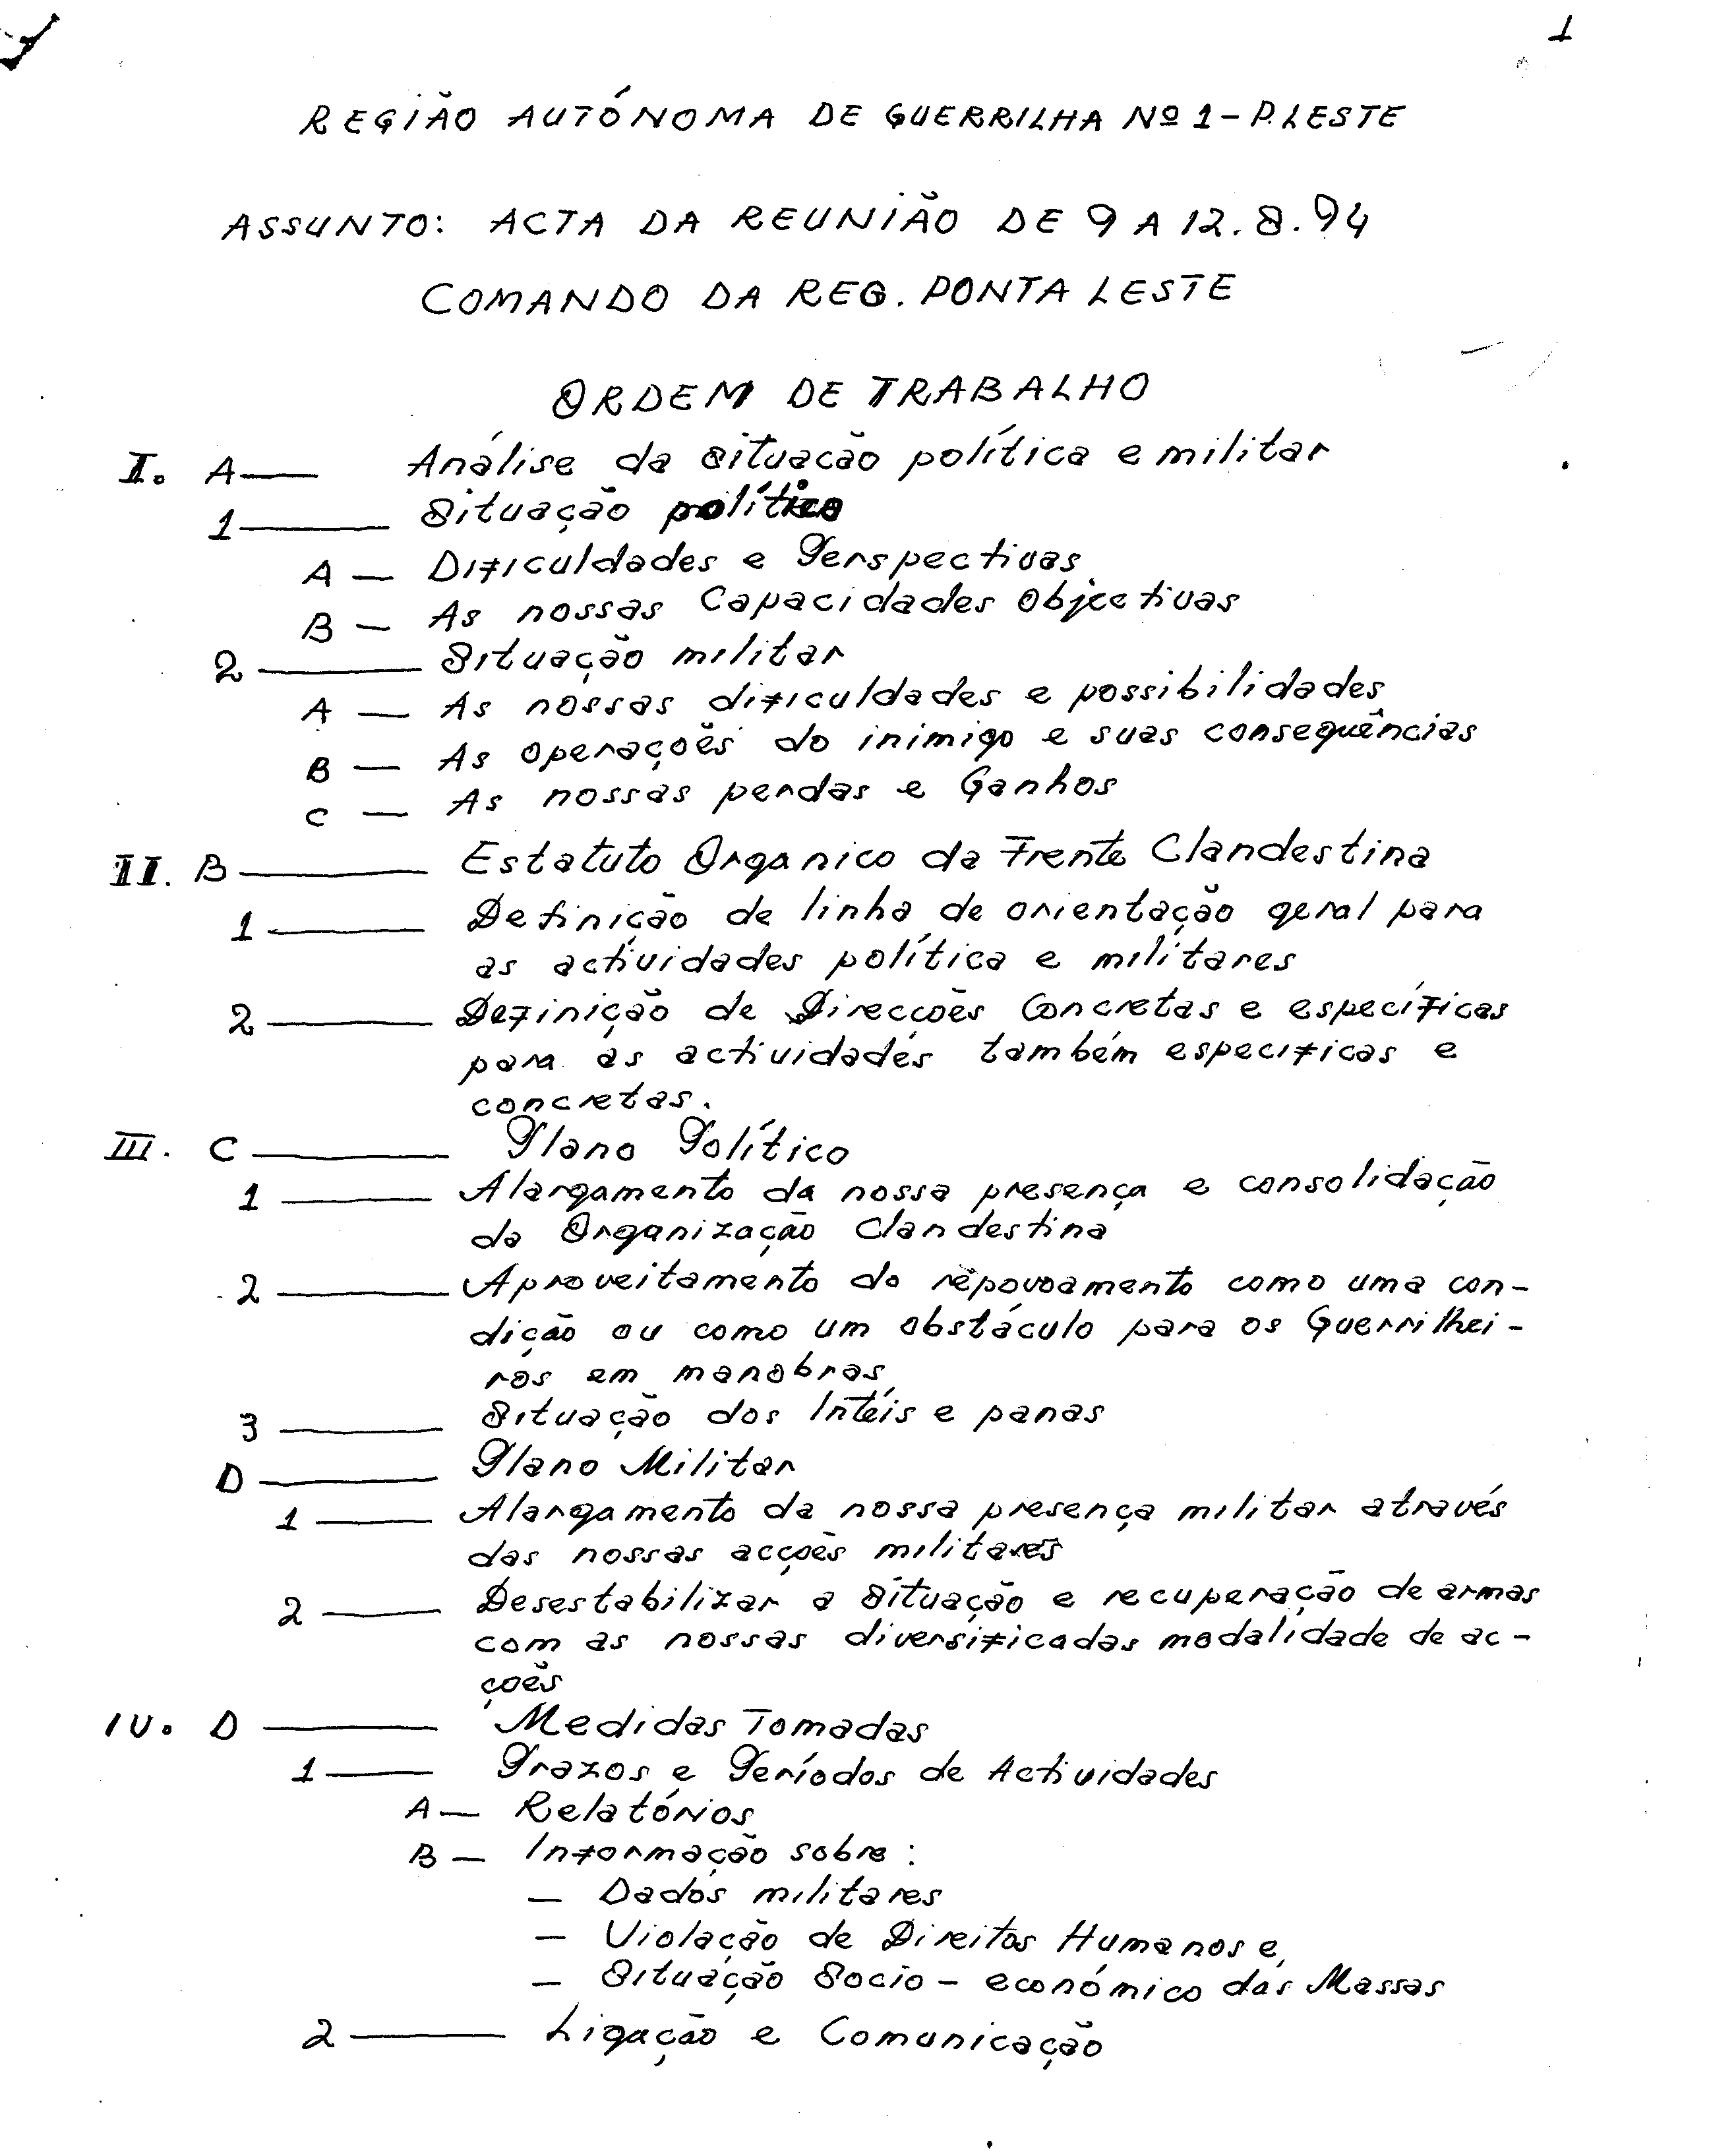 1
REGIÃO AUTÓNOMA DE GUERRILHA Nº 1 - P. LESTE
ASSUNTO: ACTA DA REUNIÃO DE 9 A 12.8.94
COMANDO DA REG. PONTA LESTE
ORDEM DE TRABALHO
I. A — Análise da situacão política e militar
1 — Situação político
A — Dificuldades e Perspectivas
B — As nossas Capacidades Objectivas
2 — Situação militar
A — As nossas dificuldades e possibilidades
B — As operações do inimigo e suas consequências
C — As nossas perdas e Ganhos
II. B — Estatuto Organico da Frente Clandestina
1 — Definição de linha de orientação geral para
as actividades política e militares
2 — Definição de Direcções Concretas e específicas
para as actividades também especificas e
concretas.
III. C — Plano Político
1 — Alargamento da nossa presença e consolidação
da Organização Clandestina
2 — Aproveitamento do repovoamento como uma con-
dição ou como um obstáculo para os Guerrilhei-
ros em manobras
3 — Situação dos Intéis e panas
D — Plano Militar
1 — Alargamento da nossa presença militar através
das nossas acções militares
2 — Desestabilizar a situação e recuperação de armas
com as nossas diversificadas modalidade de ac-
ções
IV. D — Medidas Tomadas
1 — Prazos e Períodos de Actividades
A — Relatórios
B — Informação sobre:
— Dados militares
— Violação de Direitos Humanos e,
— Situação Socio - económico das Massas
2 — Ligação e Comunicação